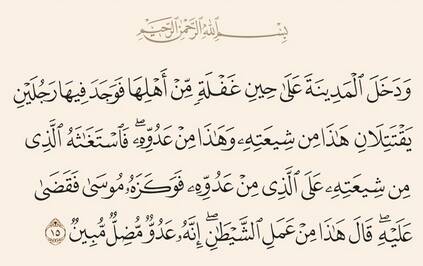 بِسْمِ ٱللَّهِ ٱلرَّحْمَٰنِ ٱلرَّحِيمِ
وَدَخَلَ ٱلْمَدِينَةَ عَلَىٰ حِينِ غَفْلَةٍ مِّنْ أَهْلِهَا فَوَجَدَ فِيهَا رَجُلَيْنِ
يَقْتَتِلَانِ هَٰذَا مِن شِيعَتِهِۦ وَهَٰذَا مِنْ عَدُوِّهِۦۖ فَٱسْتَغَٰثَهُ ٱلَّذِى
مِن شِيعَتِهِۦ عَلَى ٱلَّذِى مِنْ عَدُوِّهِۦ فَوَكَزَهُۥ مُوسَىٰ فَقَضَىٰ
عَلَيْهِۖ قَالَ هَٰذَا مِنْ عَمَلِ ٱلشَّيْطَٰنِۖ إِنَّهُۥ عَدُوٌّ مُّضِلٌّ مُّبِينٌ ١٥